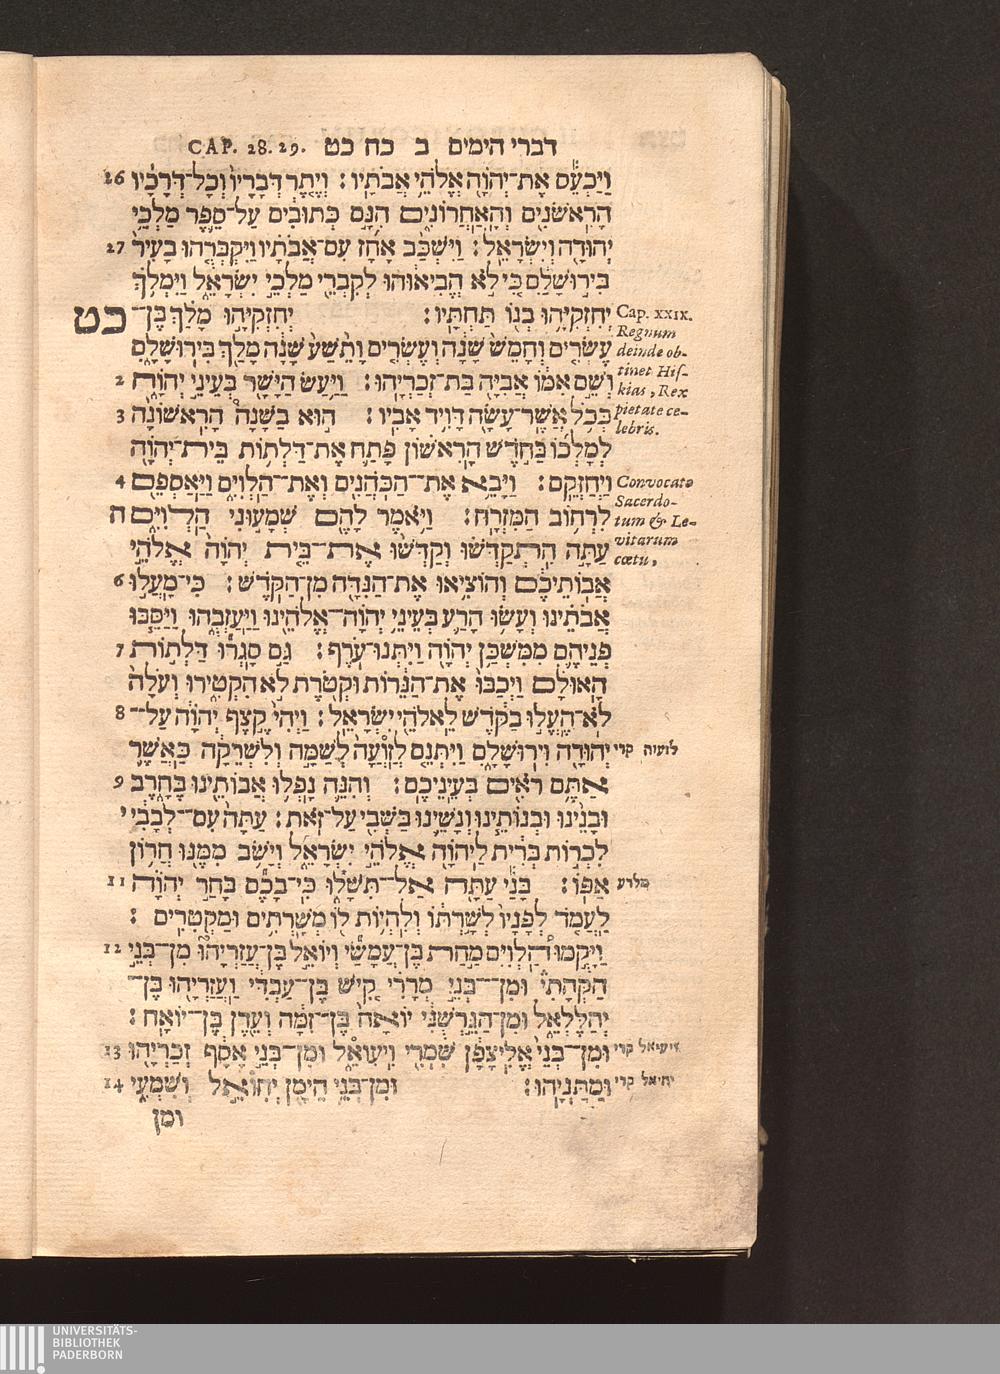 CAP. 28.29. דברי הימים ב כח כט
וַיַּכְעֵס אֶת־יְהוָה אֱלֹהֵי אֲבֹתָיו : וְיֶתֶר דְּבָרָיו וְכָל־דְּרָכָיו 26
הָרִאשֹׁנִים וְהָאַחֲרוֹנִים הִנָּם כְּתוּבִים עַל־סֵפֶר מַלְכֵי
יְהוּדָה וְיִשְׂרָאֵל : וַיִּשְׁכַּב אָחָז עִם־אֲבֹתָיו וַיִּקְבְּרֻהוּ בָעִיר 27
בִּירוּשָׁלִַם כִּי לֹא הֱבִיאוּהוּ לְקִבְרֵי מַלְכֵי יִשְׂרָאֵל וַיִּמְלֹךְ
יְחִזְקִיָּהוּ בְנוֹ תַּחְתָּיו : יְחִזְקִיָּהוּ מָלַךְ בֶּן־ כט
עֶשְׂרִים וְחָמֵשׁ שָׁנָה וְעֶשְׂרִים וָתֵשַׁע שָׁנָה מָלַךְ בִּירוּשָׁלִָם
וְשֵׁם אִמּוֹ אֲבִיָּה בַּת־זְכַרְיָהוּ : וַיַּעַשׂ הַיָּשָׁר בְּעֵינֵי יְהוָה 2
בְּכֹל אֲשֶׁר־עָשָׂה דָּוִיד אָבִיו : הוּא בַשָּׁנָה הָרִאשׁוֹנָה 3
לְמָלְכוֹ בַּחֹדֶשׁ הָרִאשׁוֹן פָּתַח אֶת־דַּלְתוֹת בֵּית־יְהוָה
וַיְחַזְּקֵם : וַיָּבֵא אֶת־הַכֹּהֲנִים וְאֶת־הַלְוִיִּם וַיַּאַסְפֵם 4
לִרְחוֹב הַמִּזְרָח : וַיֹּאמֶר לָהֶם שְׁמָעוּנִי הַלְוִיִּם ה
עַתָּה הִתְקַדְּשׁוּ וְקַדְּשׁוּ אֶת־בֵּית יְהוָה אֱלֹהֵי
אֲבוֹתֵיכֶם וְהוֹצִיאוּ אֶת־הַנִּדָּה מִן־הַקֹּדֶשׁ : כִּי־מָעֲלוּ 6
אֲבֹתֵינוּ וְעָשׂוּ הָרַע בְּעֵינֵי יְהוָה־אֱלֹהֵינוּ וַיַּעַזְבֻהוּ וַיַּסֵּבּוּ
פְנֵיהֶם מִמִּשְׁכַּן יְהוָה וַיִּתְּנוּ־עֹרֶף : גַּם סָגְרוּ דַּלְתוֹת 7
הָאוּלָם וַיְכַבּוּ אֶת־הַנֵּרוֹת וּקְטֹרֶת לֹא הִקְטִירוּ וְעֹלָה
לֹא־הֶעֱלוּ בַקֹּדֶשׁ לֵאלֹהֵי יִשְׂרָאֵל : וַיְהִי קֶצֶף יְהוָה עַל־ 8
יְהוּדָה וִירוּשָׁלִָם וַיִּתְּנֵם לְזַוֲעָה לְשַׁמָּה וְלִשְׁרֵקָה כַּאֲשֶׁר
אַתֶּם רֹאִים בְּעֵינֵיכֶם : וְהִנֵּה נָפְלוּ אֲבוֹתֵינוּ בֶּחָרֶב 9
וּבָנֵינוּ וּבְנוֹתֵינוּ וְנָשֵׁינוּ בַּשְּׁבִי עַל־זֹאת : עַתָּה עִם־לְבָבִי י
לִכְרוֹת בְּרִית לַיהוָה אֱלֹהֵי יִשְׂרָאֵל וְיָשֹׁב מִמֶּנּוּ חֲרוֹן
אַפּוֹ : בָּנַי עַתָּה אַל־תִּשָּׁלוּ כִּי־בָכֶם בָּחַר יְהוָה 11
לַעֲמֹד לְפָנָיו לְשָׁרְתוֹ וְלִהְיוֹת לוֹ מְשָׁרְתִים וּמַקְטִרִים :
וַיָּקֻמוּ הַלְוִיִּם מַחַת בֶּן־עֲמָשַׂי וְיוֹאֵל בֶּן־עֲזַרְיָהוּ מִן־בְּנֵי 12
הַקְּהָתִי וּמִן־בְּנֵי מְרָרִי קִישׁ בֶּן־עַבְדִּי וַעֲזַרְיָהוּ בֶן־
יְהַלֶּלְאֵל וּמִן־הַגֵּרְשֻׁנִּי יוֹאָח בֶּן־זִמָּה וְעֵדֶן בֶּן־יוֹאָח :
וּמִן־בְּנֵי אֱלִיצָפָן שִׁמְרִי וִיעִוּאֵל וּמִן־בְּנֵי אָסָף זְכַרְיָהוּ 13
וּמַתַּנְיָהוּ : וּמִן־בְּנֵי הֵימָן יְחִוֹאֵל וְשִׁמְעִי 14
ומן
Cap. XXIX.
Regnum
deinde ob-
tinet His-
kias, Rex
pietate ce-
lebris.
Convocato
Sacerdo-
tum & Le-
vitarum
cœtu,
לזעוה קרי
מלרע
ויעיאל קרי
יחיאל קרי
UNIVERSITÄTS-
BIBLIOTHEK
PADERBORN